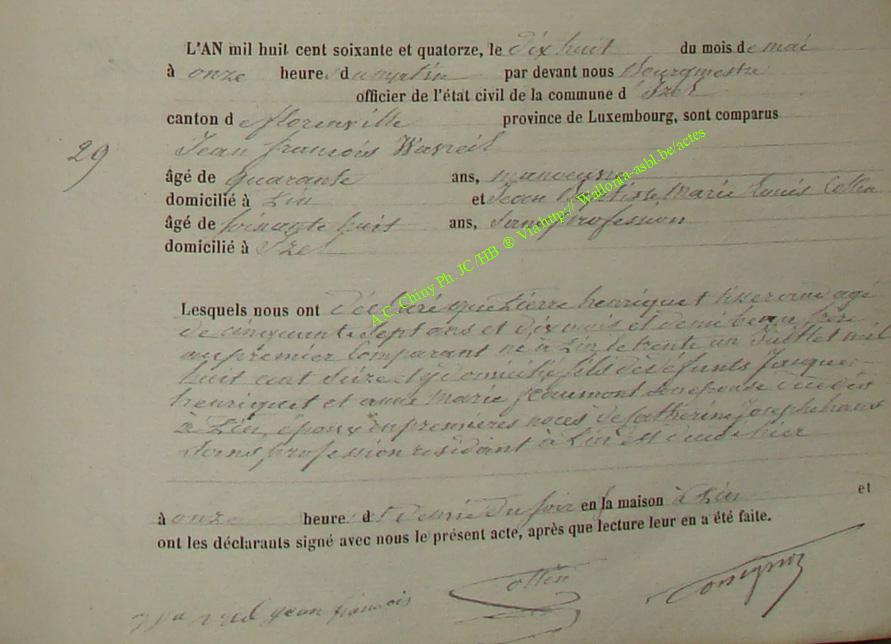 L'AN mil huit cent soixante et quatorze, le dix huit du mois de mai
à onze heures du matin par devant nous Bourgmestre
officier de l'état civil de la commune d'Izel
canton de florenville province de Luxembourg, sont comparus
29
Jean françois Wavreil
âgé de quarante ans, manoeuvre
domicilié à Pin et Jean Baptiste Marie Louis Collin
âgé de soixante huit ans, sans profession
domicilié à Izel
A.C. Chiny Ph. JC /HB ® Via http:// Wallonia-asbl.be/actes
Lesquels nous ont déclaré que Pierre henriquet tisserand agé
de cinquante sept ans et dix mois et demi beau frère
au premier Comparant né à Pin le trente un Juillet mil
huit cent Seize et y domicilié fils des défunts Jacque
henriquet et anne Marie Jeaumont son épouse
à Pin, époux en premières noces de Catherine Josèphe
sans profession résidant à Pin est décédé hier
à onze heure et demie du soir en la maison à Pin et
ont les déclarants signé avec nous le présent acte, après que lecture leur en a été faite.
jean françois